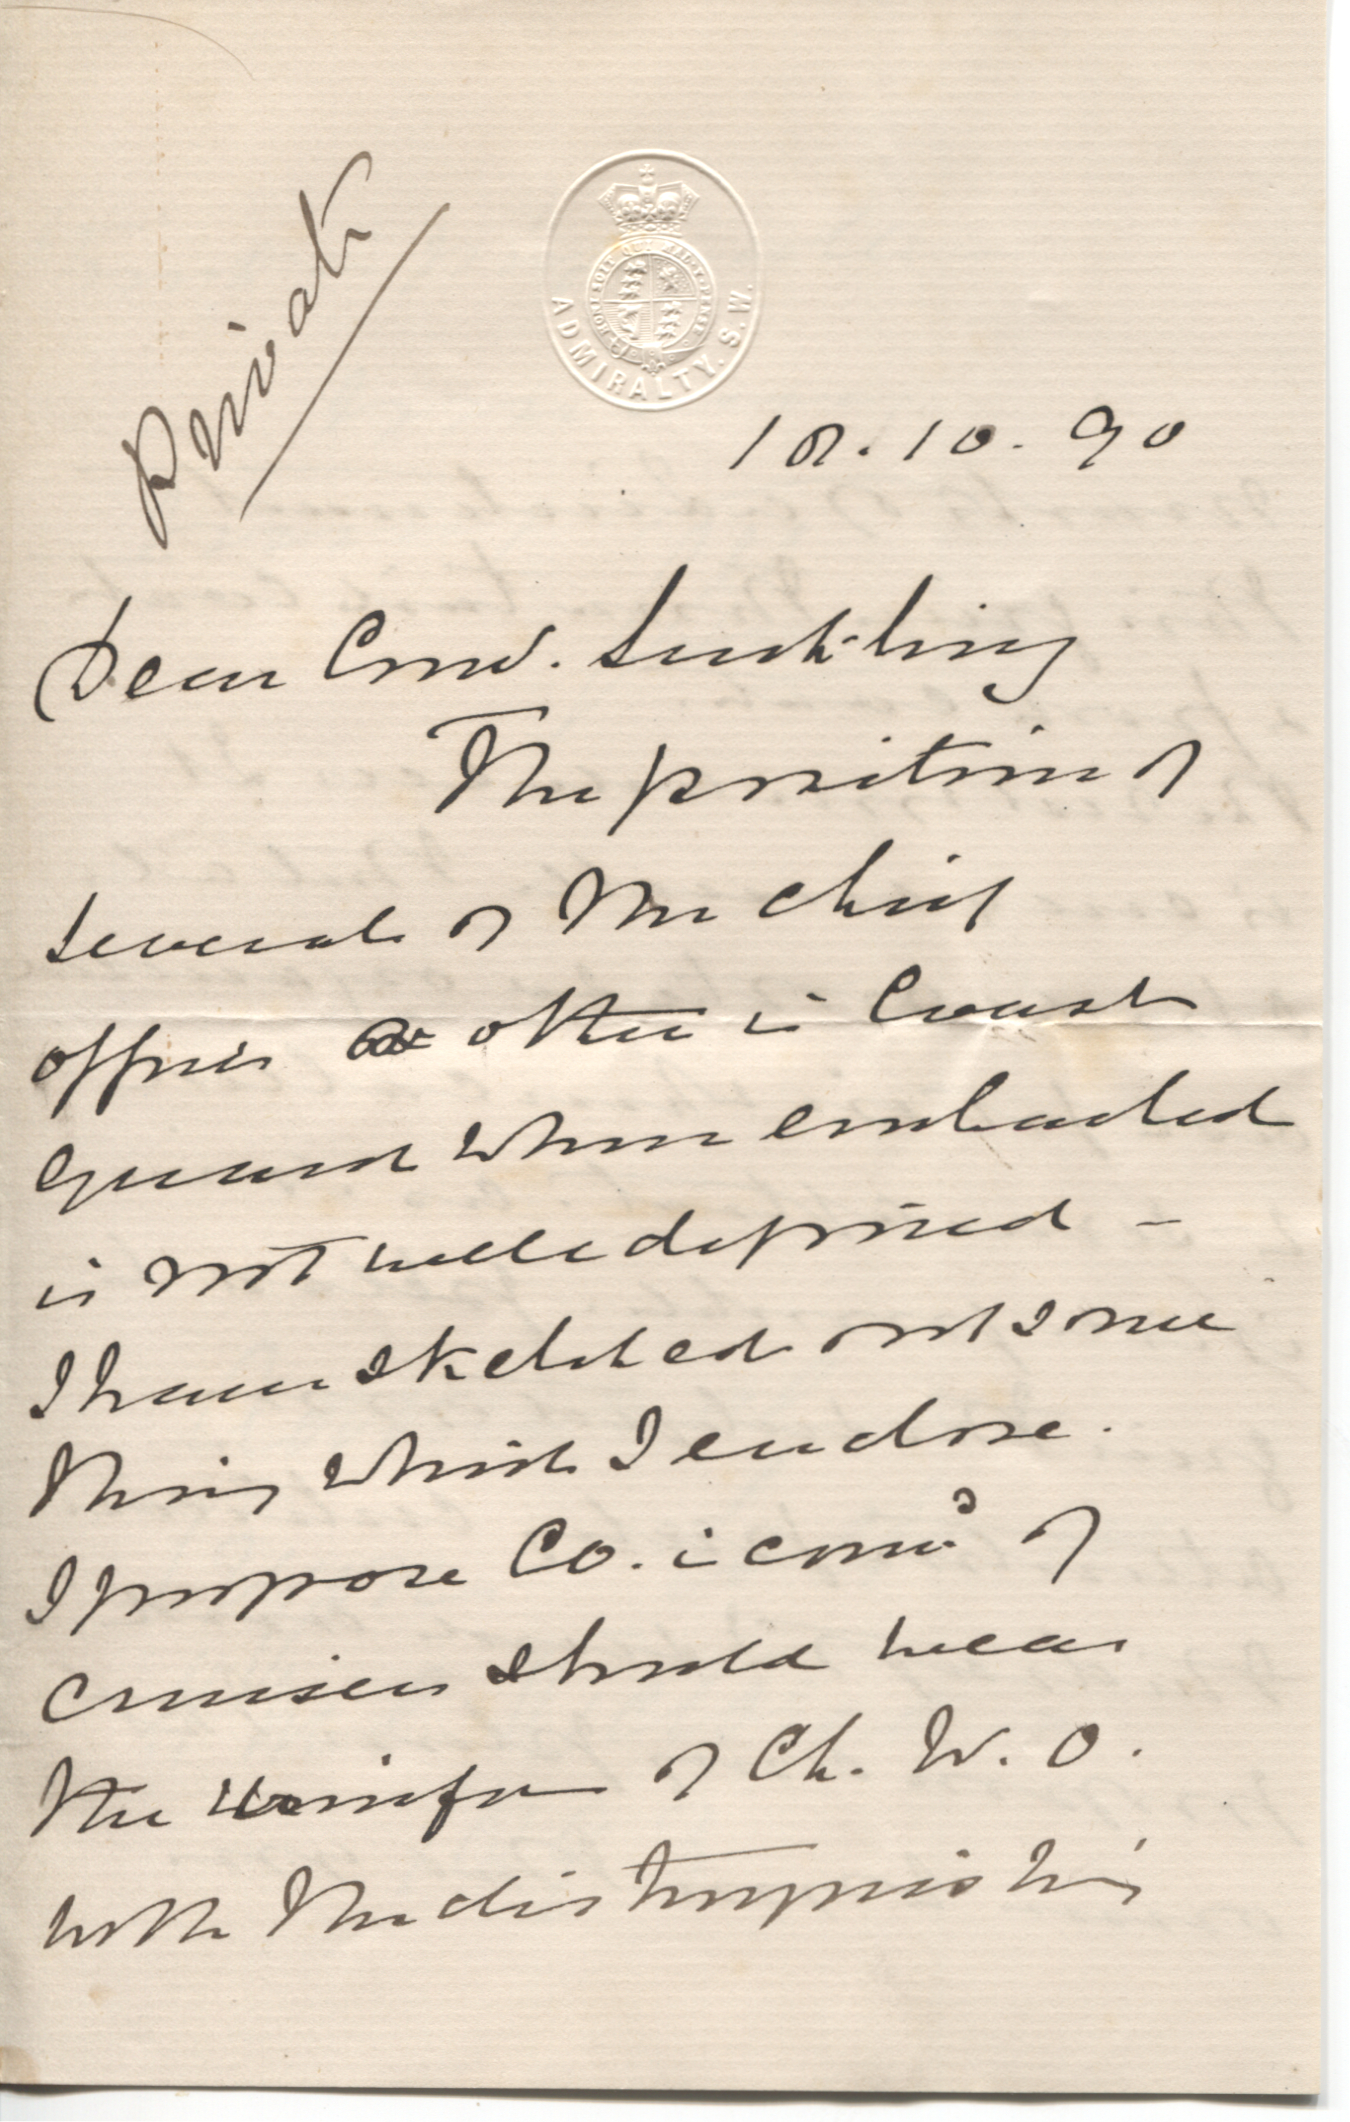 Private
HONI SOIT QUI MAL Y PENSE
ADMIRALTY. S. W.
18.10.90
Dear Comd. Suckling
The position of
several of the chief
officers & other in Coast
Guard when embarked
is not well defined –
I have sketched out some
thing which I enclose.
I propose CO. i comd of
cruisers should wear
the uniform of Ch. W. O.
with the distinguishing